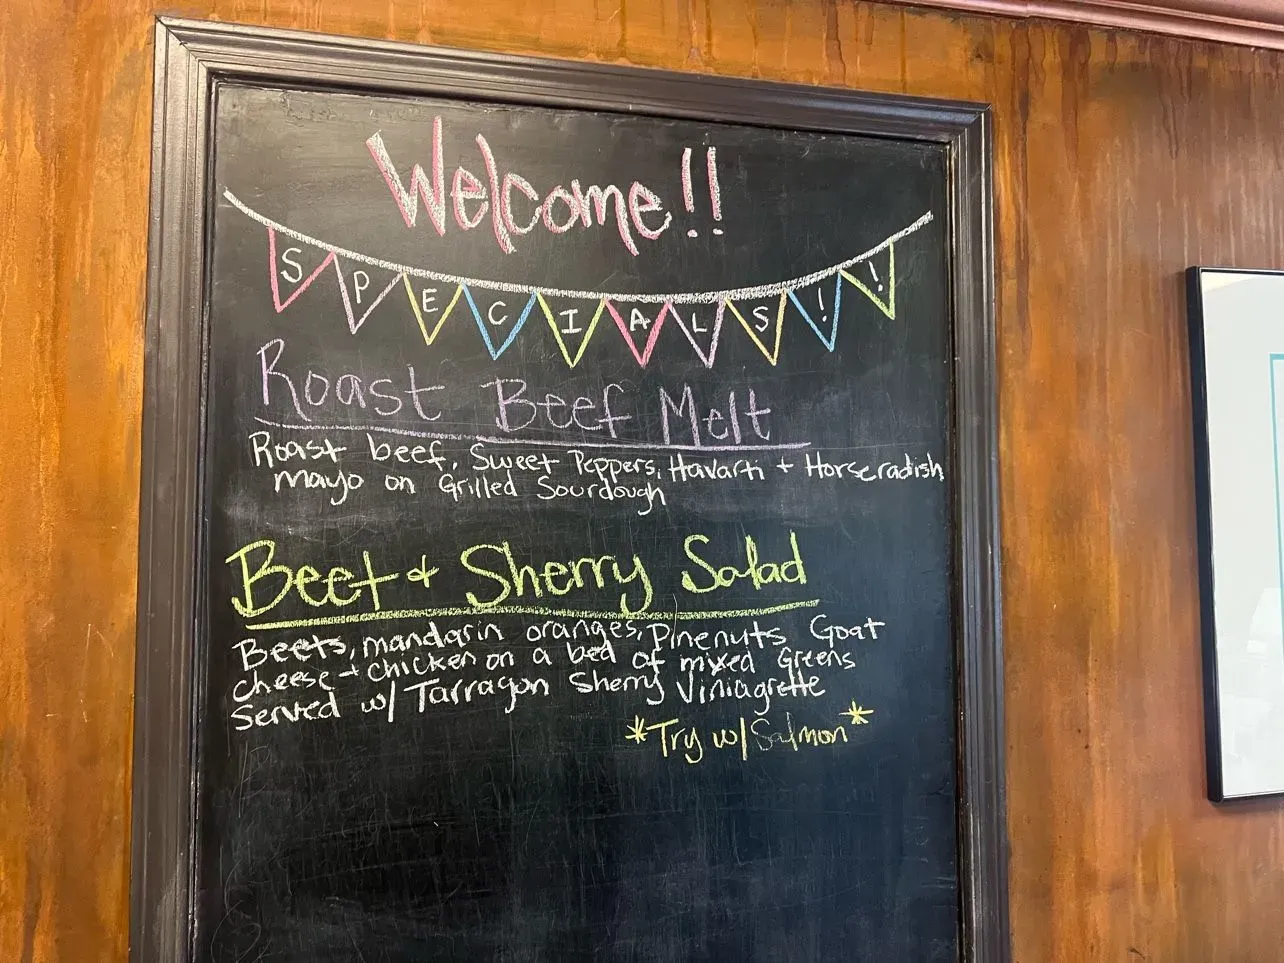 Welcome!!
SPECIALS!!
Roast Beef Melt
Roast beef, Sweet Peppers, Havarti + Horseradish
mayo on Grilled Sourdough
Beet + Sherry Salad
Beets, mandarin oranges, Pinenuts, Goat
cheese + chicken on a bed of mixed Greens
Served w/ Tarragon Sherry Viniagrette
*Try w/ Salmon*